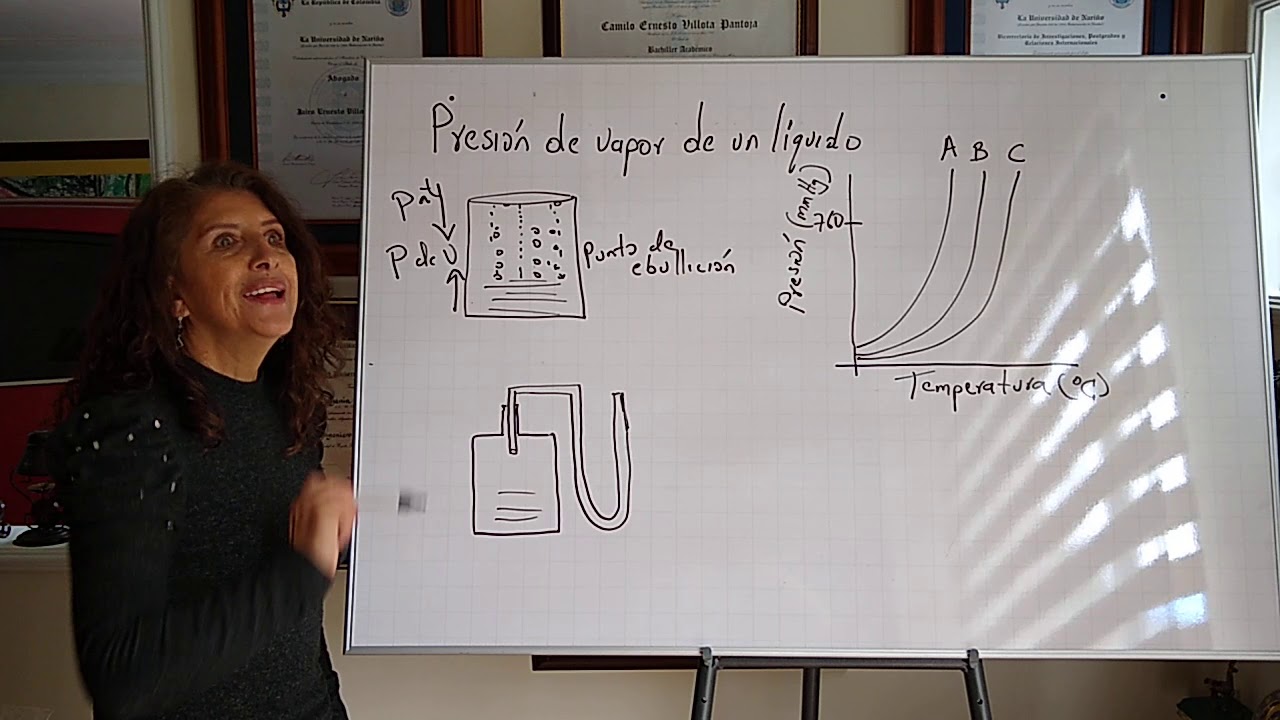 La República de Colombia
La Universidad de Nariño
Abogado
Jairo Ernesto
Camilo Ernesto Villota Pantoja
Bachiller Académico
La Universidad de Nariño
Vicerrectoría de Investigaciones, Postgrados y
Relaciones Internacionales
Presión de vapor de un líquido
P atm
P de V
punto de
ebullición
A B C
Presión (mmHg)
760
Temperatura (°C)